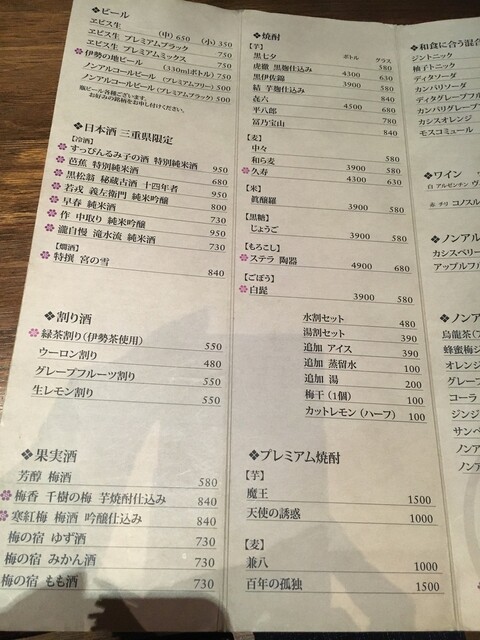 ❖ビール
ヱビス生 (中) 650 (小) 350
ヱビス生 プレミアムブラック 750
ヱビス生 プレミアムミックス 750
伊勢の地ビール (330mlボトル) 750
ノンアルコールビール (プレミアムフリー) 500
ノンアルコールビール (プレミアムブラック) 500
瓶ビール各種ございます。
お好みの銘柄をお申し付けください。
❖日本酒 三重県限定
【冷酒】
すっぴんるみ子の酒 特別純米酒 950
芭蕉 特別純米酒 680
黒松翁 秘蔵古酒 十四年者 950
若戎 義左衛門 純米吟醸 800
早春 純米酒 730
作 中取り 純米吟醸 950
瀧自慢 滝水流 純米酒 730
【燗酒】
特撰 宮の雪 840
❖割り酒
緑茶割り(伊勢茶使用) 550
ウーロン割り 480
グレープフルーツ割り 550
生レモン割り 550
❖果実酒
芳醇 梅酒 580
梅香 千樹の梅 芋焼酎仕込み 840
寒紅梅 梅酒 吟醸仕込み 840
梅の宿 ゆず酒 730
梅の宿 みかん酒 730
梅の宿 もも酒 730
❖焼酎
【芋】 ボトル グラス
黒七夕 580
虎徹 黒麹仕込み 4300 630
黒伊佐錦 3900 580
結 芋麹仕込み 680
㐂六
平八郎 4500 780
冨乃宝山 840
【麦】
中々 580
和ら麦 3900 580
久寿 4300 630
【米】
眞醸羅 3900 580
【黒糖】
じょうご 3900 580
【もろこし】
ステラ 陶器 4900 680
【ごぼう】
白髭 3900 580
水割セット 480
湯割セット 390
追加 アイス 390
追加 蒸留水 200
追加 湯 200
梅干(1個) 100
カットレモン(ハーフ) 100
❖プレミアム焼酎
【芋】
魔王 1500
天使の誘惑 1000
【麦】
兼八 1000
百年の孤独 1500
❖和食に合う混合
ジントニック
柚子トニック
ディタソーダ
カンパリソーダ
ディタグレープフル
カンパリグレープフ
カシスオレンジ
モスコミュール
❖ワイン
白 アルゼンチン
赤 チリ コノスル
❖ノンアル
カシスベリー
アップルフル
❖ノンア
烏龍茶(ア
蜂蜜梅ジ
オレンジ
グレープ
コーラ
ジンジ
サンペ
ノンア
ノンア